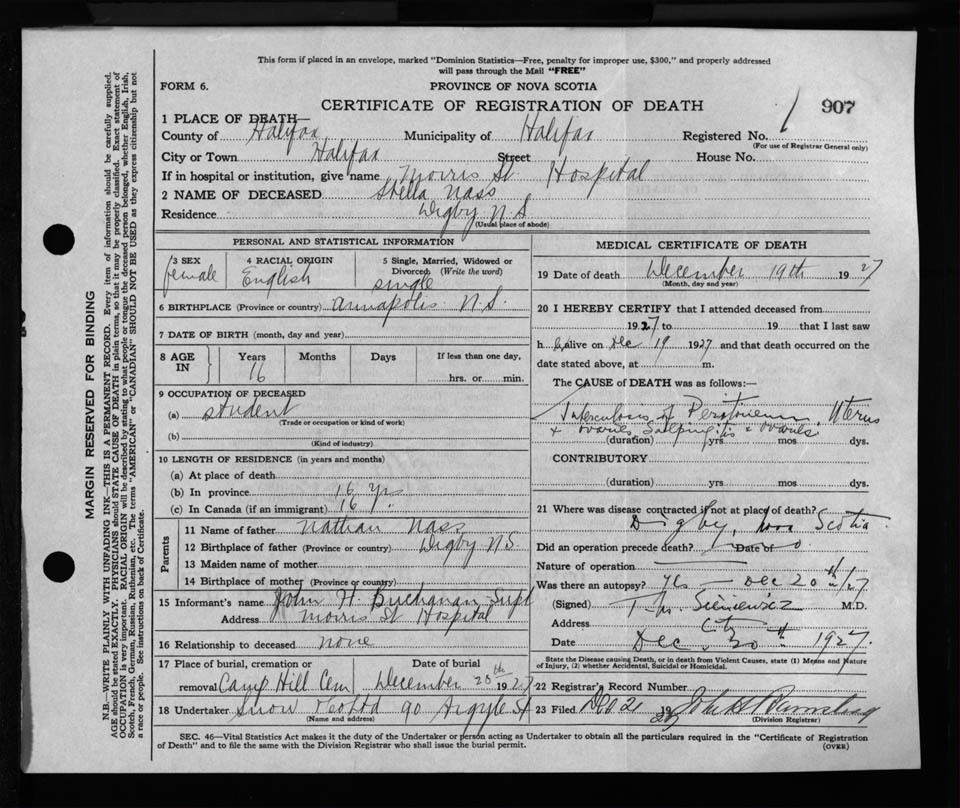 This form if placed in an envelope, marked "Dominion Statistics—Free, penalty for improper use, $300," and properly addressed
will pass through the Mail "FREE"
FORM 6.
PROVINCE OF NOVA SCOTIA
CERTIFICATE OF REGISTRATION OF DEATH
907
1 PLACE OF DEATH—
County of Halifax Municipality of Halifax Registered No.
(For use of Registrar General only)
City or Town Halifax Street House No.
If in hospital or institution, give name Morris St. Hospital
2 NAME OF DECEASED Stella Nass
Residence Digby N.S.
(Usual place of abode)
PERSONAL AND STATISTICAL INFORMATION
3 SEX 4 RACIAL ORIGIN 5 Single, Married, Widowed or
Divorced (Write the word)
female English single
6 BIRTHPLACE (Province or country) Annapolis N.S.
7 DATE OF BIRTH (month, day and year)
8 AGE IN Years Months Days If less than one day,
16 hrs. or min.
9 OCCUPATION OF DECEASED
(a) student
(Trade or occupation or kind of work)
(b)
(Kind of industry)
10 LENGTH OF RESIDENCE (in years and months)
(a) At place of death
(b) In province 16 yrs
(c) In Canada (if an immigrant) 16 "
Parents
11 Name of father Nathan Nass
12 Birthplace of father (Province or country) Digby N.S.
13 Maiden name of mother
14 Birthplace of mother (Province or country)
15 Informant's name John H. Buchanan Supt
Address Morris St Hospital
16 Relationship to deceased none
17 Place of burial, cremation or Date of burial
removal Camp Hill Cem December 20th 1927
18 Undertaker Snow 90 Argyle St
(Name and address)
MEDICAL CERTIFICATE OF DEATH
19 Date of death December 19th 1927
(Month, day and year)
20 I HEREBY CERTIFY that I attended deceased from
1927 to 19 that I last saw
h alive on Dec 19 1927 and that death occurred on the
date stated above, at m.
The CAUSE OF DEATH was as follows:—
Tuberculosis of Peritoneum, Uterus
+ ovaries Salpingitis + ovaries
(duration) yrs mos dys.
CONTRIBUTORY
(duration) yrs. mos. dys.
21 Where was disease contracted if not at place of death?
Digby, Nova Scotia
Did an operation precede death? Date of
Nature of operation
Was there an autopsy? Yes — Dec 20th/27
(Signed) M.D.
Address City
Date Dec. 20th 1927.
State the Disease causing Death, or in death from Violent Causes, state (1) Means and Nature
of Injury, (2) whether Accidental, Suicidal or Homicidal.
22 Registrar's Record Number
23 Filed Dec 21 19
(Division Registrar)
SEC. 46—Vital Statistics Act makes it the duty of the Undertaker or person acting as Undertaker to obtain all the particulars required in the "Certificate of Registration
of Death" and to file the same with the Division Registrar who shall issue the burial permit.
(OVER)
MARGIN RESERVED FOR BINDING
N.B.—WRITE PLAINLY WITH UNFADING INK—THIS IS A PERMANENT RECORD. Every item of information should be carefully supplied.
AGE should be stated EXACTLY. PHYSICIANS should STATE CAUSE OF DEATH in plain terms, so that it may be properly classified. Exact statement of
OCCUPATION is very important. RACIAL ORIGIN will be described by stating to what people or tongue the deceased person belonged, whether English, Irish,
Scotch, French, German, Russian, Ruthenian, etc. The terms "AMERICAN" or "CANADIAN" SHOULD NOT BE USED as they express citizenship but not
a race or people. See instructions on back of Certificate.